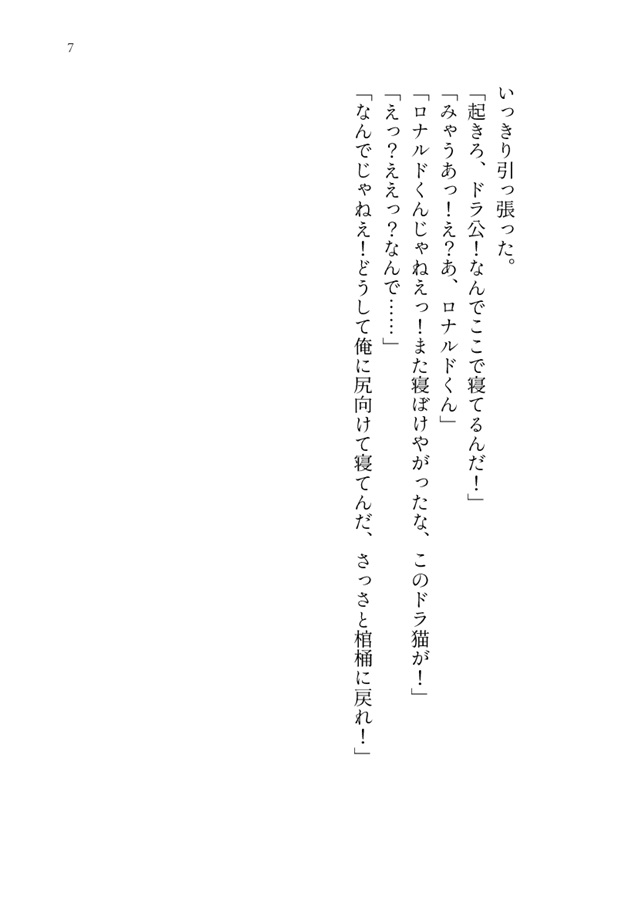 7
いっきり引っ張った。
「起きろ、ドラ公！なんでここで寝てるんだ！」
「みゃうあっ！え？あ、ロナルドくん」
「ロナルドくんじゃねえっ！また寝ぼけやがったな、このドラ猫が！」
「えっ？ええっ？なんで……」
「なんでじゃねえ！どうして俺に尻向けて寝てんだ、さっさと棺桶に戻れ！」